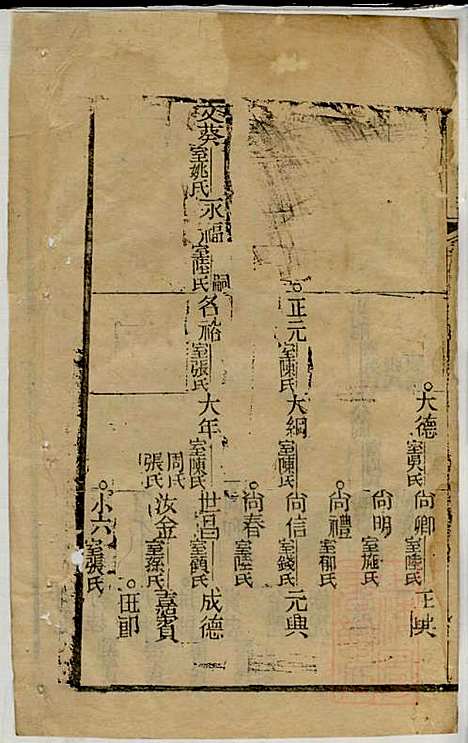 大德 室吳氏 尚卿 室陳氏 正典
尚明 室施氏
尚禮 室郁氏
正元 室陳氏 大綱 室陳氏 尚信 室錢氏 元典
尚春 室陸氏
文葵 室姚氏 永福 室陸氏 嗣 名裕 室張氏 大年 室陳氏 世昌 室顧氏 成德
周氏 張氏 汝金 室孫氏 嘉賓
田郎
小六 室張氏